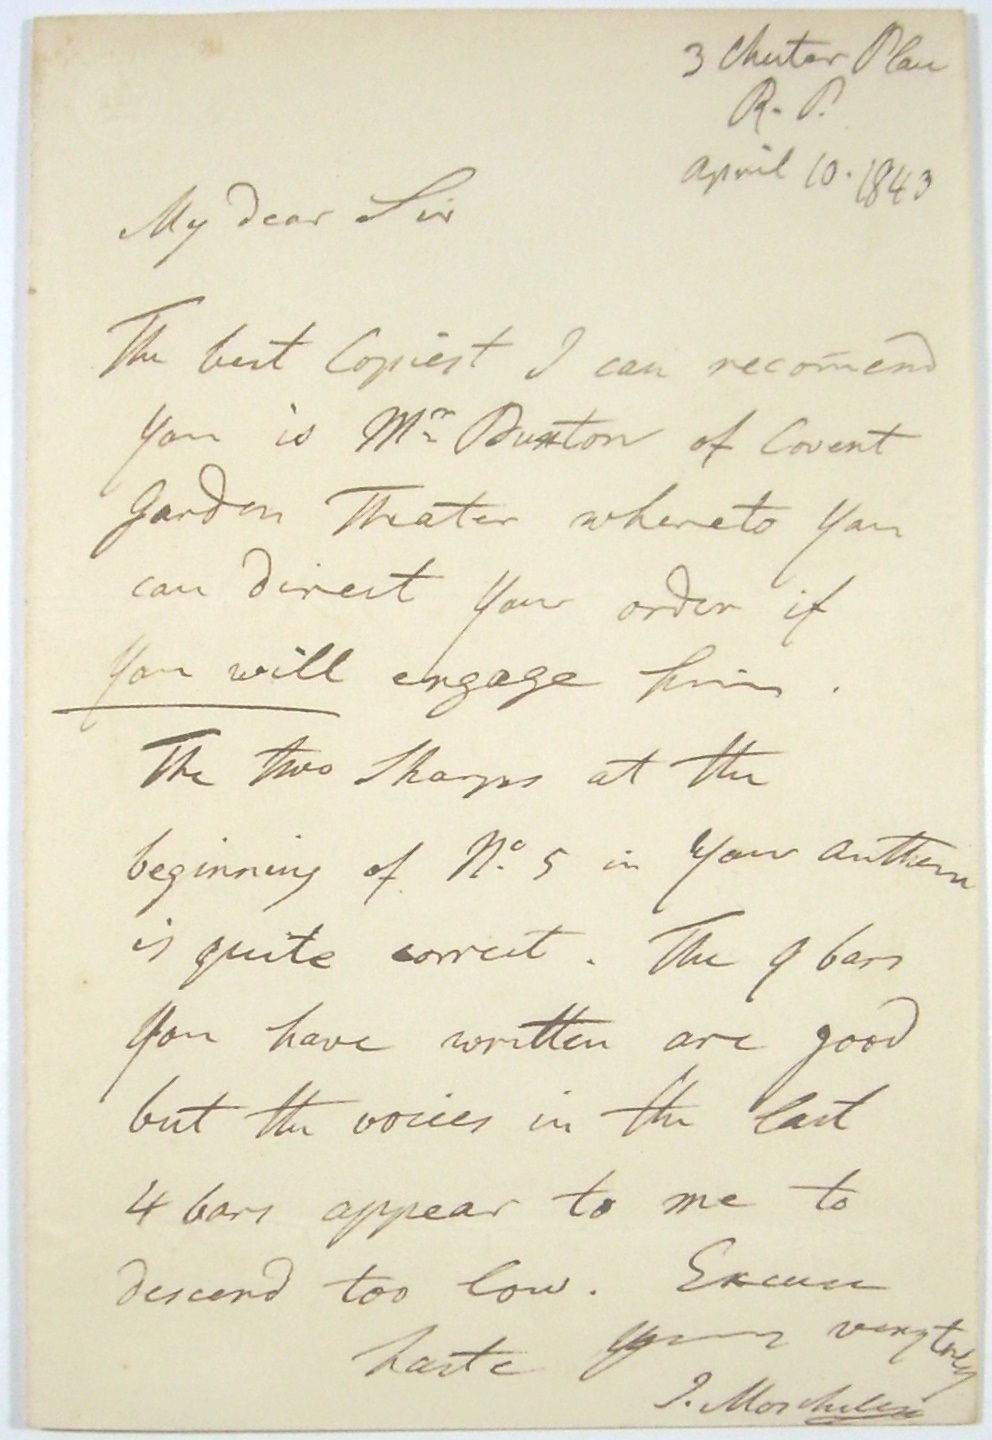 3 Chester Place
R. P.
April 10. 1843
My dear Sir
The best Copiest I can recom̄end
you is Mr Buxton of Covent
Garden Theater whereto you
can direct your order if
you will engage him.
The two Sharps at the
beginning of No. 5 in your anthem
is quite correct. The 9 bars
you have written are good
but the voices in the last
4 bars appear to me to
descend too low. Excuse
haste yours very truly
I. Moscheles